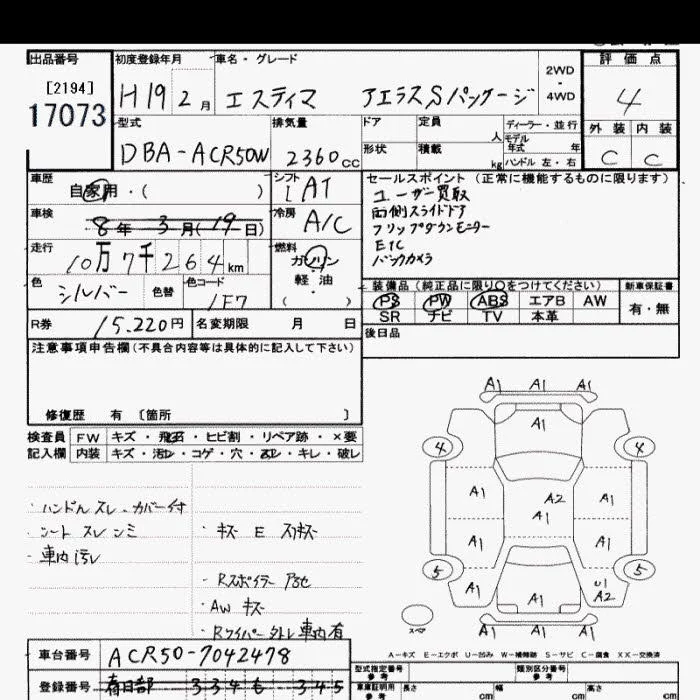 出品番号 初度登録年月 車名・グレード 2WD・4WD 評価点
[2194]
17073
H19 2月 エスティマ アエラスSパッケージ 4
型式 排気量 ドア 定員 人 ディーラー・並行
モデル年式 年
外装 内装
DBA-ACR50W 2360cc 形状 積載 kg ハンドル 左・右 C C
車歴 自家用・( ) シフト LAT セールスポイント(正常に機能するものに限ります)
ユーザー買取
両側スライドドア
フリップダウンモニター
ETC
バックカメラ
車検 8年3月(19日) 冷房 A/C
走行 10万7千264km 燃料 ガソリン・軽油
( )
色 シルバー 色替 色コード 1F7
装備品(純正品に限り○をつけてください) 新車保証書
PS PW ABS エアB AW 有・無
SR ナビ TV 本革
R券 15,220円 名変期限 月 日
後日品
注意事項申告欄(不具合内容等は具体的に記入して下さい)
修復歴 有 〔箇所 〕
検査員 FW キズ・飛石・ヒビ割・リペア跡・×要
記入欄 内装 キズ・汚レ・コゲ・穴・スレ・キレ・破レ
・ハンドルスレ・カバー付
・シートスレシミ
・車内汚レ
・キズ E スリキズ
・Rスポイラー アセ
・AW キズ
・Rワイパー外レ車内有
A1 A1 A1
A1
4 4
A1 A2 A1
A1
A1 A1
5 5
A1 A1 U1
A2
スペア
A1 A1 A1
A-キズ E-エクボ U-凹み W-補修跡 S-サビ C-腐食 XX-交換済
車台番号 ACR50-7042478
登録番号 春日部 334 も 345
型式指定番号 参考 類別区分番号 参考
車庫証明用 参考 長さ cm 幅 cm 高さ cm